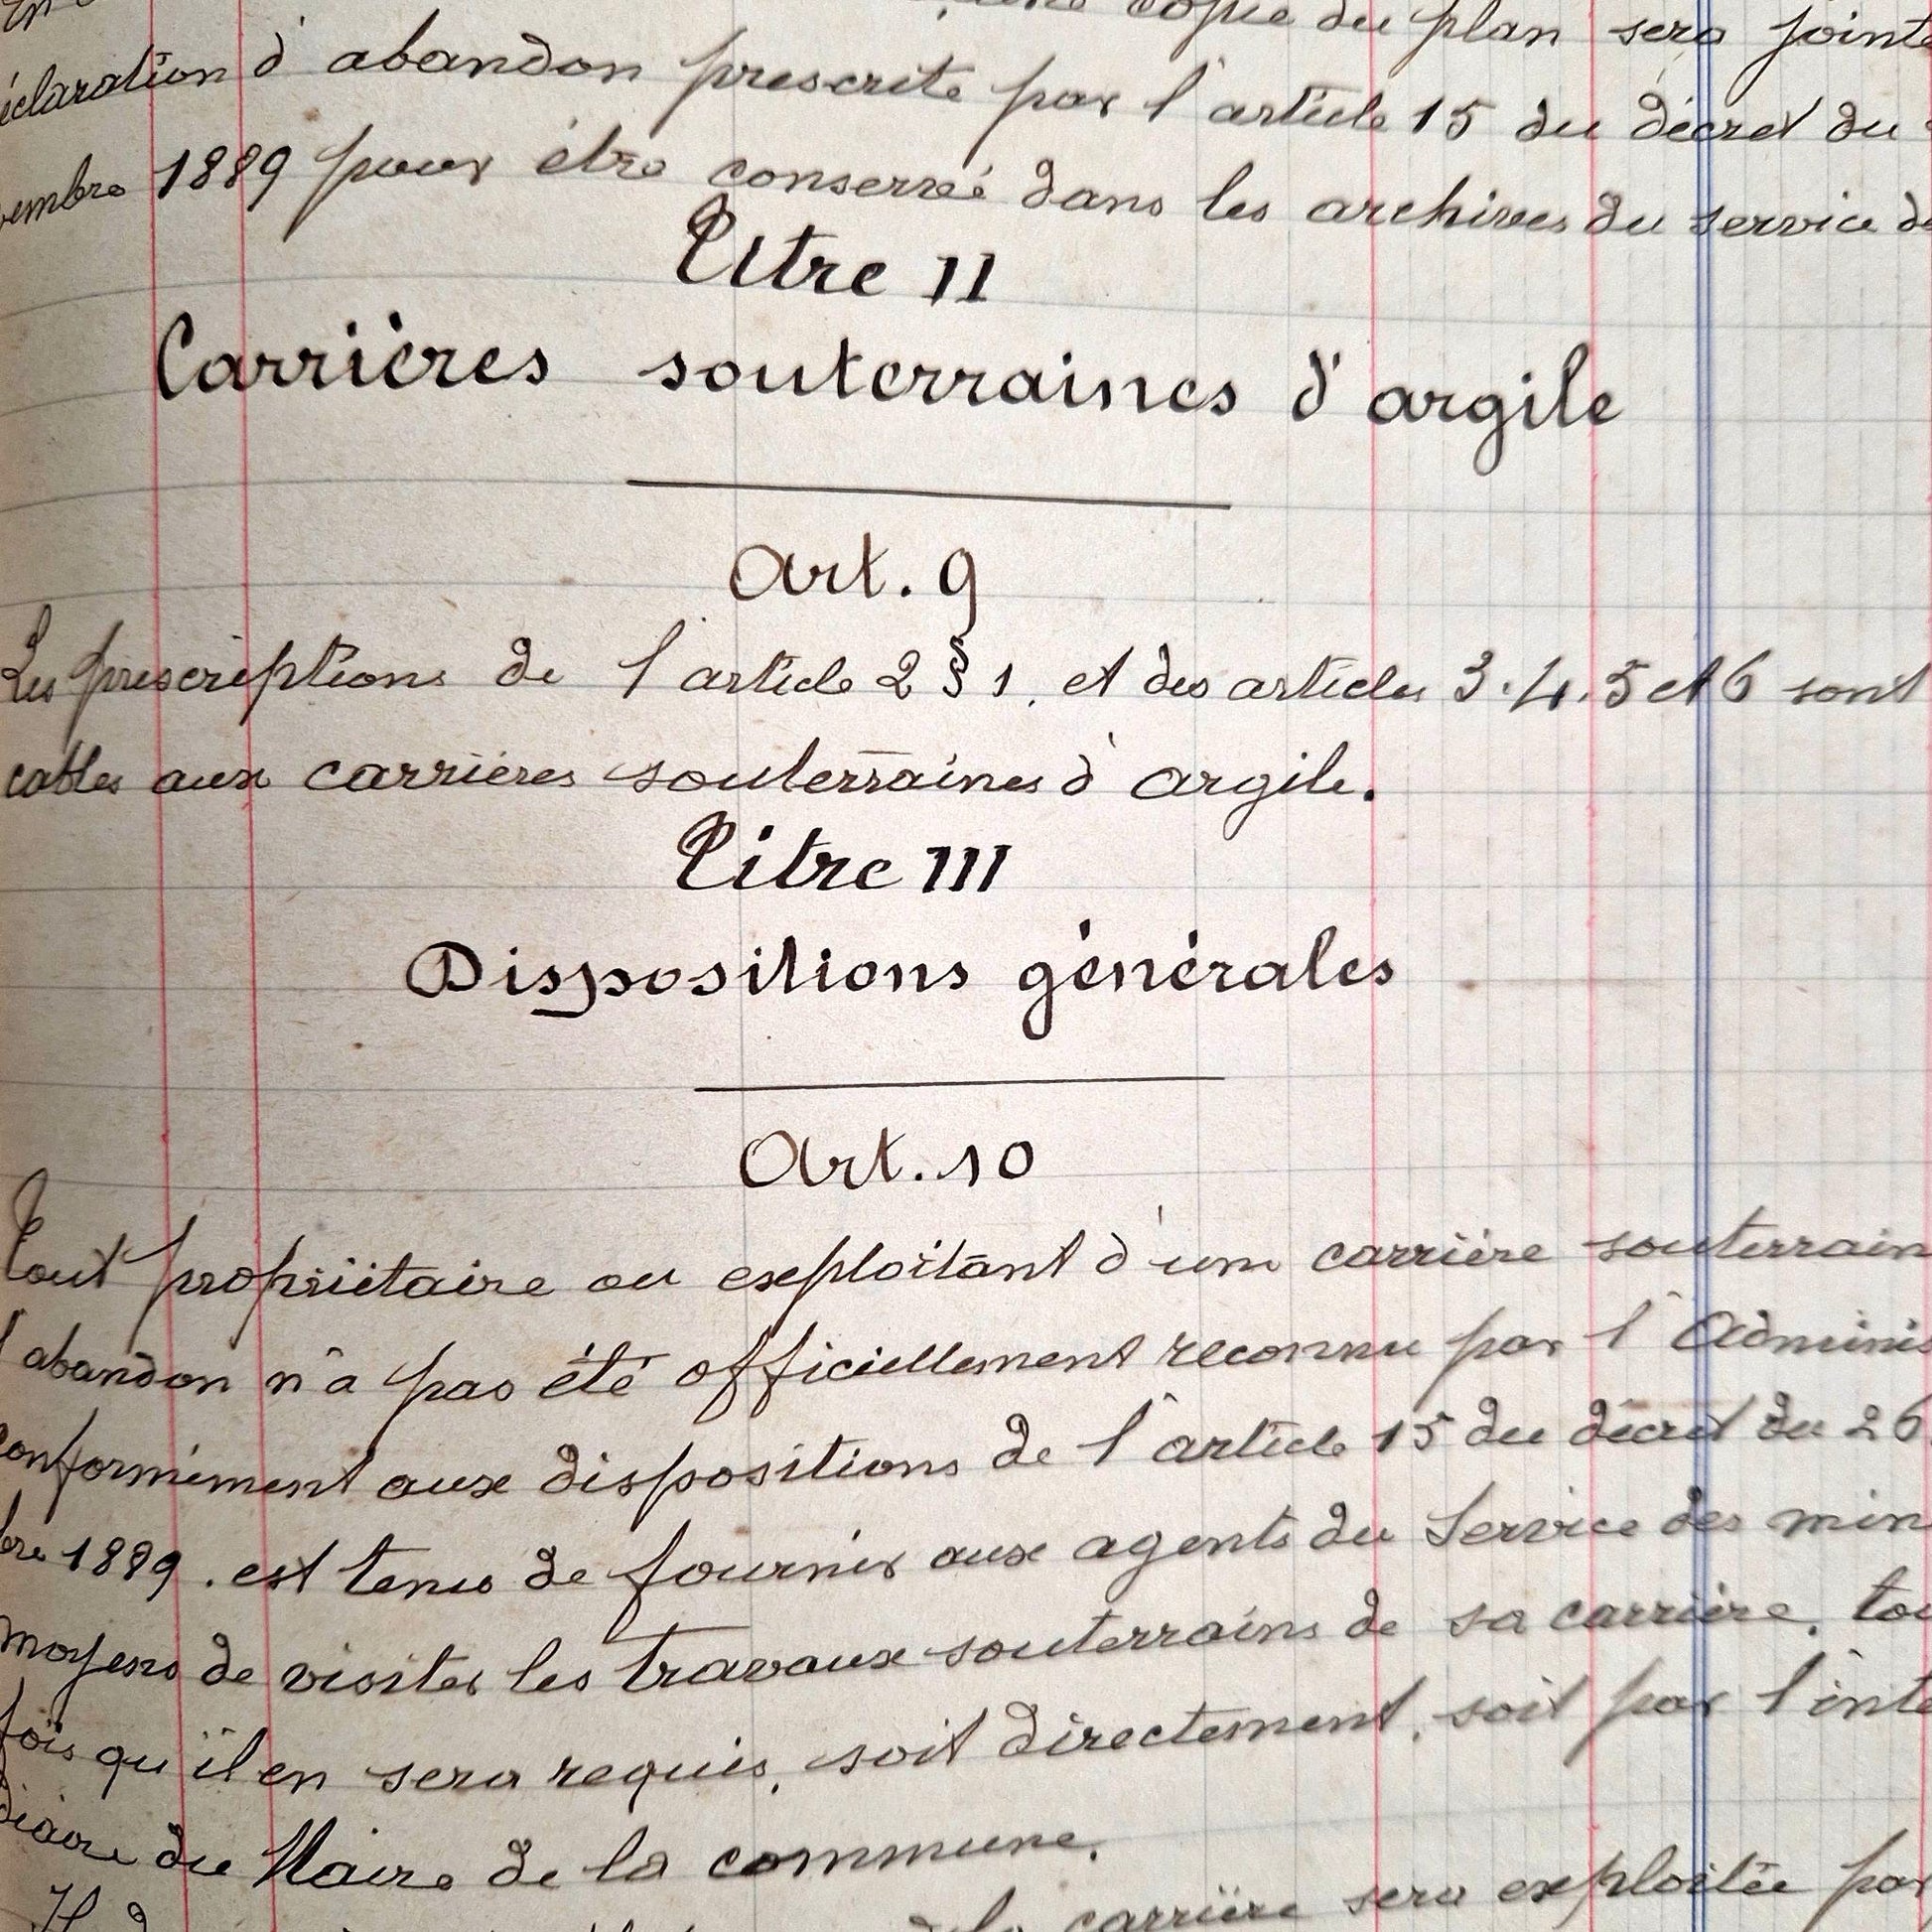 copie du plan sera jointe
éclaration d'abandon prescrite par l'article 15 du décret du
vembre 1889 pour être conservé dans les archives du service de
Titre II
Carrières souterraines d'argile
Art. 9
Les prescriptions de l'article 2 § 1, et des articles 3.4.5 et 6 sont
cables aux carrières souterraines d'argile.
Titre III
Dispositions générales
Art. 10
Tout propriétaire ou exploitant d'une carrière souterrain
l'abandon n'a pas été officiellement reconnu par l'Adminis
conformément aux dispositions de l'article 15 du décret du 26
bre 1889. est tenu de fournir aux agents du Service des min
moyens de visiter les travaux souterrains de sa carrière, tou
fois qu'il en sera requis, soit directement, soit par l'inte
diaire du Maire de la commune.
carrière sera exploitée par